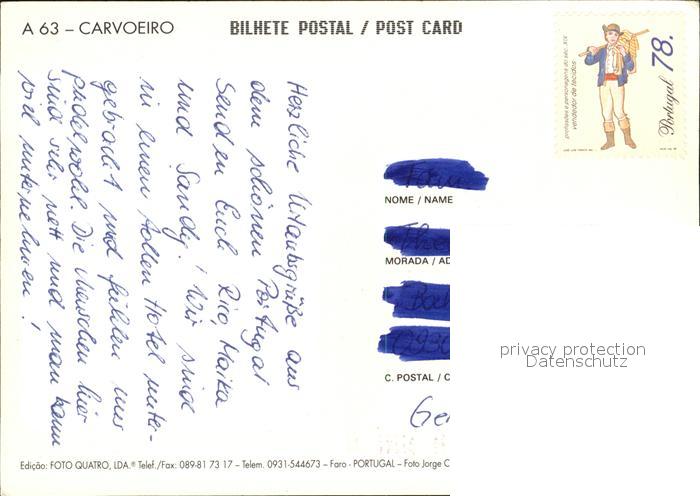 A 63 – CARVOEIRO
BILHETE POSTAL / POST CARD
Herzliche Urlaubsgrüße aus
dem schönen Portugal
Senden Euch Rico, Maika
und Sandy! Wir sind
in einem tollen Hotel unter-
gebracht und fühlen uns
pudelwohl. Die Menschen hier
sind sehr nett und man kann
viel unternehmen!
78.
Portugal
vendedor de tecidos
NOME / NAME
MORADA / AD
C. POSTAL / C
Ge
privacy protection
Datenschutz
Edição: FOTO QUATRO, LDA.® Telef./Fax: 089-81 73 17 – Telem. 0931-544673 – Faro - PORTUGAL – Foto Jorge C